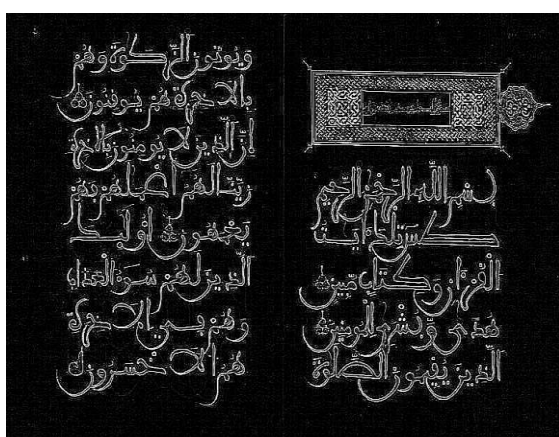 بسم الله الرحمن الرحيم
طس تلك ءايت
القرءان وكتاب مبين
هدى وبشرى للمومنين
الذين يقيمون الصلوة
ويوتون الزكوة وهم
بالاخرة هم يوقنون
ان الذين لا يومنون بالاخرة
زينا لهم اعملهم فهم
يعمهون اوليك
الذين لهم سوء العذاب
وهم في الاخرة
هم الاخسرون